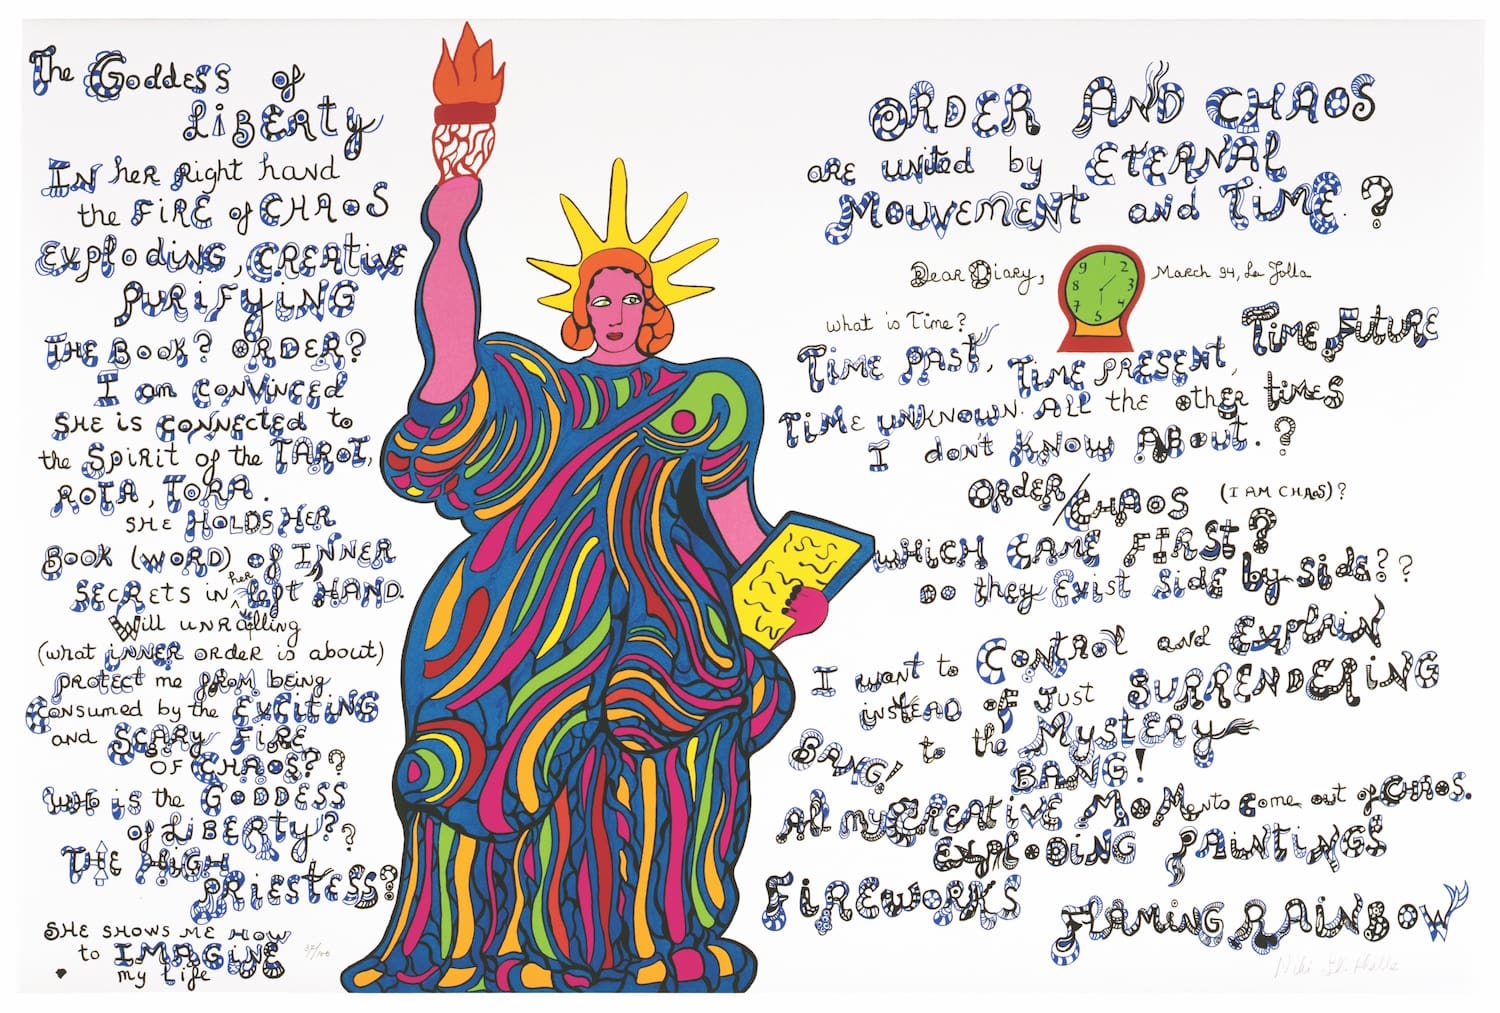 The Goddess of
LiBERty
IN her Right hand
the FiRE of CHAOS
Exploding, CREAtiVE
PURiFYiNG
THE Book? ORDER?
I am CONVINCED
SHE is CONNECTED to
the Spirit of the TAROT,
ROTA, TORA.
SHE HOLDS HER
BOOK (WORD) of INNER
SECRETS in her left HAND.
Will UNRavelling
(what iNNER ORDER is about)
protect me from being
Consumed by the EXCiTiNG
and SCARY FiRE
OF CHAOS??
WHO is the GODDESS
of LiBERty??
THE HiGH
PRiEStESS?
SHE SHOWS ME HOW
to IMAGiNE
my life
37/100
ORDER AND CHAOS
aRE united by EtERNAL
MOUVEMENT and TiME.?
Dear Diary,
March 94, La Jolla
9 2
8 3
7 4
5
what is Time?
TiME PASt, TiME PRESENT, TiME FutuRE
TiME UNKNOWN. All the other times
I don't KNOW ABOUT.?
ORDER/CHAOS (I AM CHAOS)?
WHiCH CAME FiRSt?
DO they Exist side by side??
I want to CONtROl and EXPlAiN
iNStEAD OF Just SURRENDERiNG
BANG! to the MYStERY
BANG!
All my CREAtiVE MOMents come out of CHAOS.
EXPlODiNG PAiNtiNGS
FiREWORKS
FlAMiNG RAiNBOW
Niki